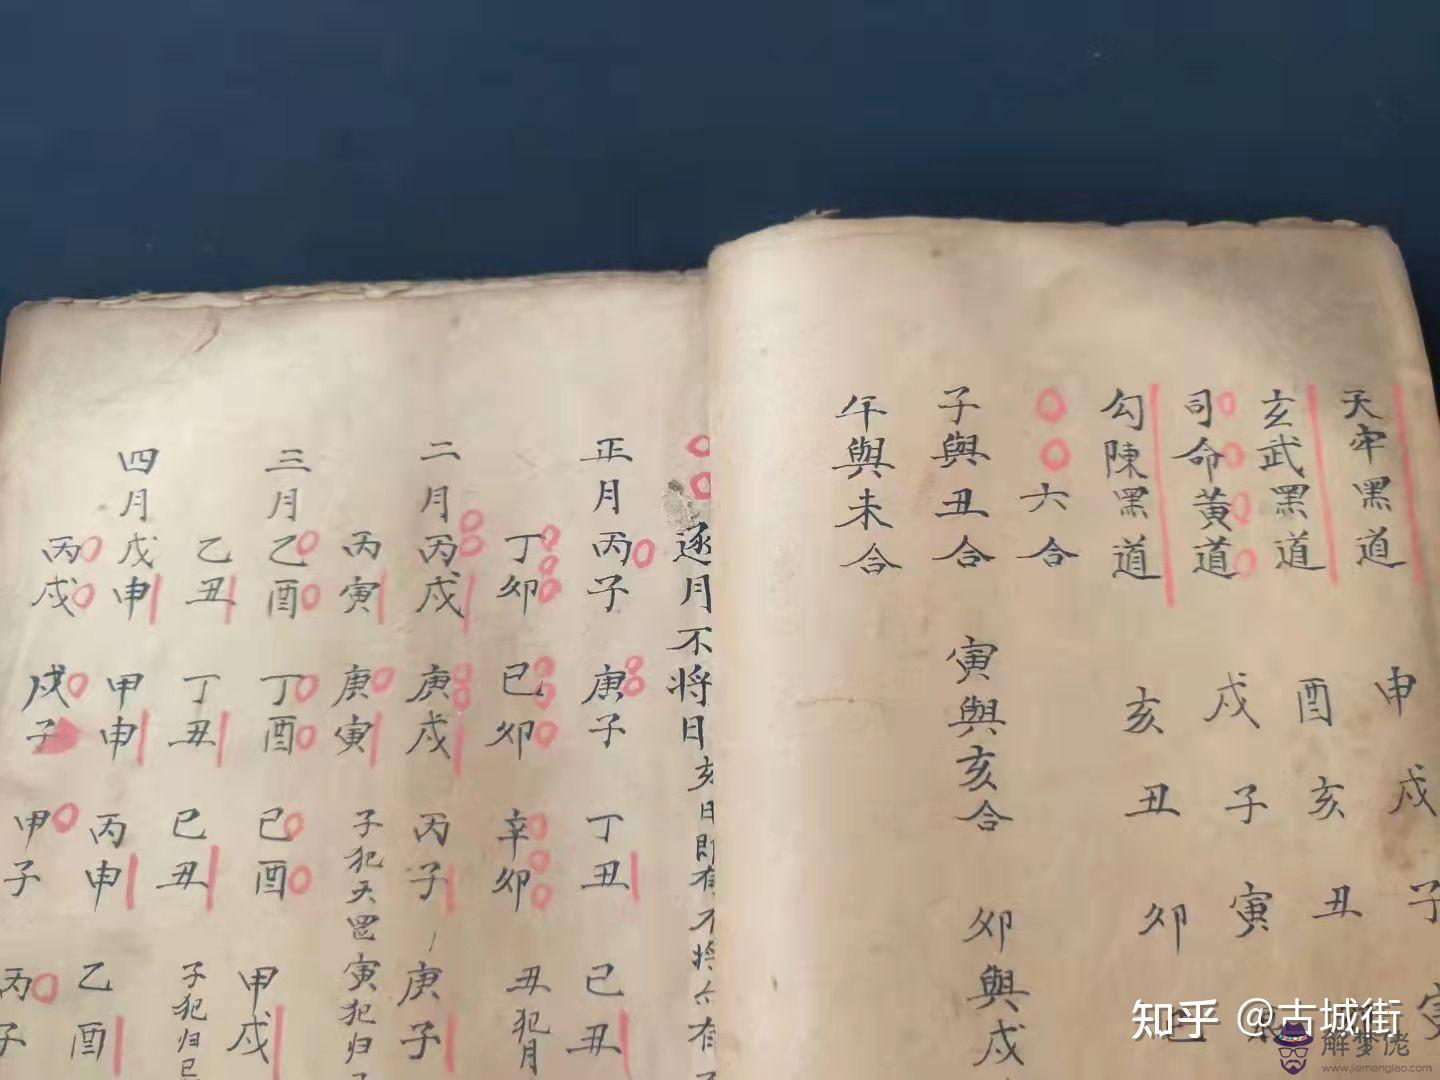 天牢黑道 申 戌 子 寅
玄武黑道 酉 亥 丑
司命黃道 戌 子 寅
勾陳黑道 亥 丑 卯 巳
六合
子與丑合 寅與亥合 卯與戌
午與未合
逐月不将日 亥日即有不将亦有
正月 丙子 庚子 丁丑 己丑
丁卯 己卯 辛卯 丑犯月
二月 丙戌 庚戌 丙子 庚子
丙寅 庚寅 子犯天罡 寅犯归
三月 乙酉 丁酉 己酉 甲戌
乙丑 丁丑 己丑 子犯归
四月 戊申 甲申 丙申 乙酉
丙戌 戊子 甲子 丙子
知乎 @古城街
解梦佬
www.jiemenglao.com